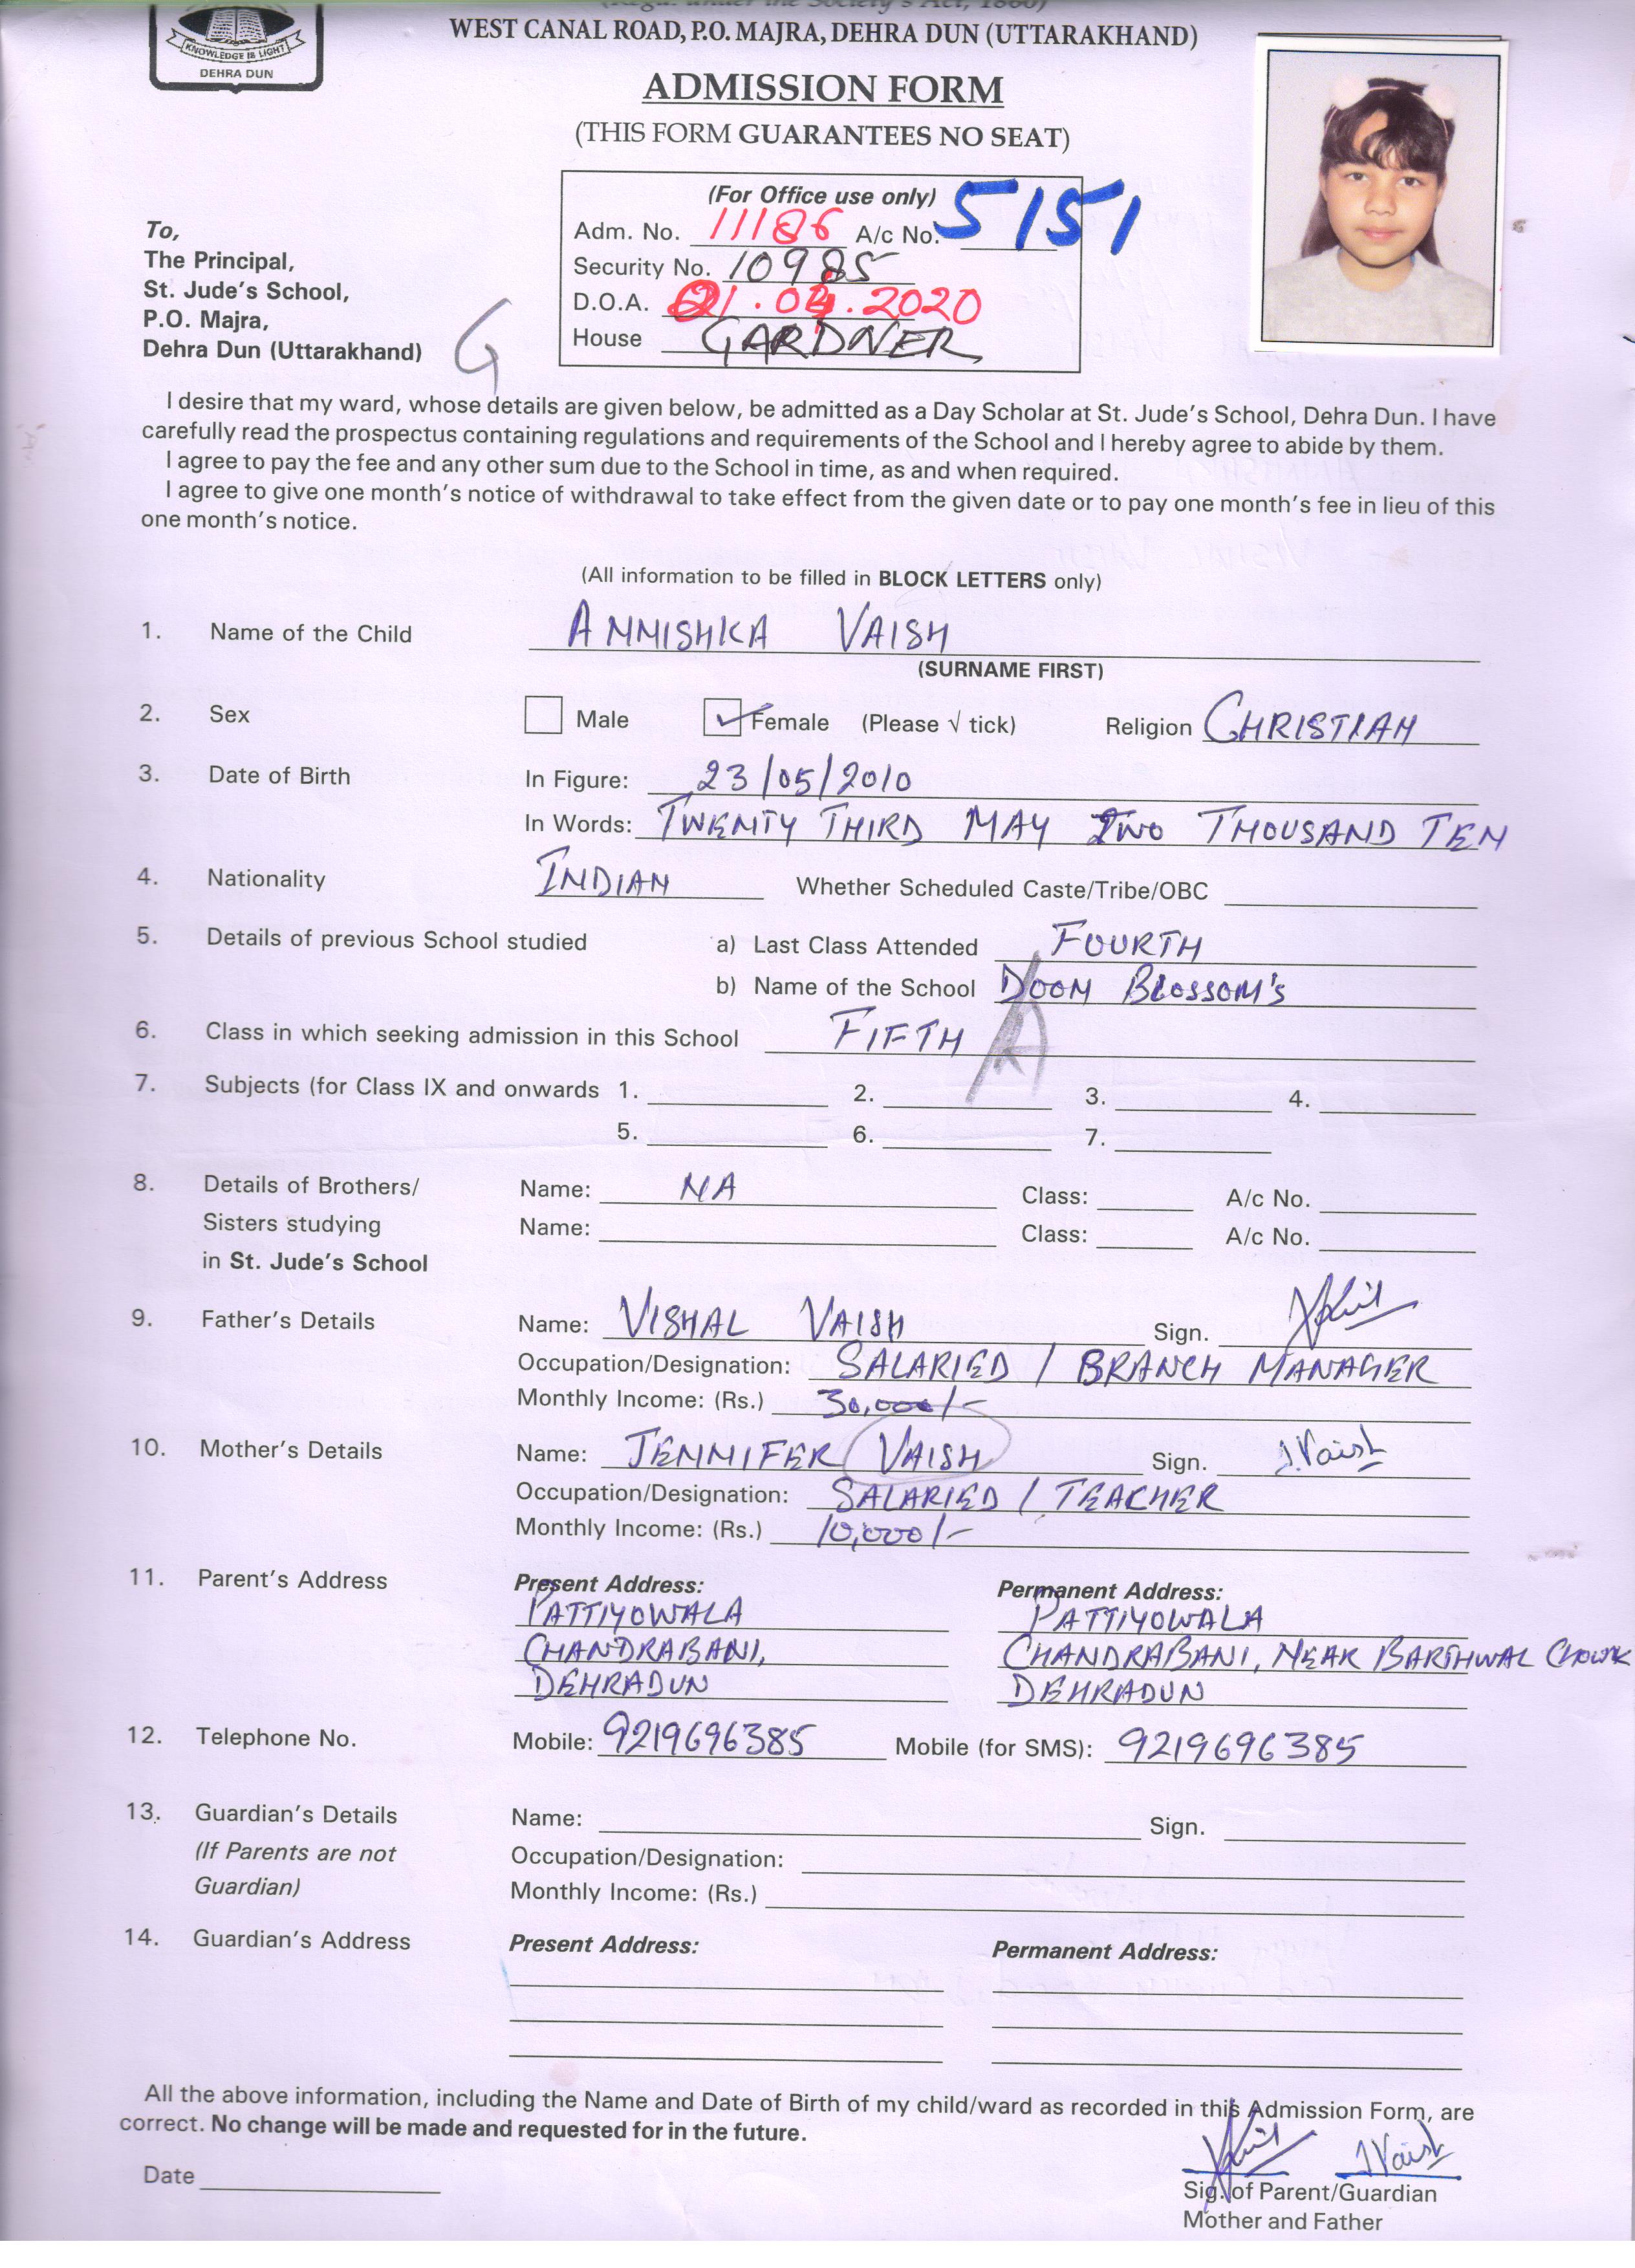 (Regd. under the Society's Act, 1860)
WEST CANAL ROAD, P.O. MAJRA, DEHRA DUN (UTTARAKHAND)
KNOWLEDGE IS LIGHT
DEHRA DUN
ADMISSION FORM
(THIS FORM GUARANTEES NO SEAT)
(For Office use only)
Adm. No. 11186 A/c No. 5151
Security No. 10985
D.O.A. 01.04.2020
House GARDNER
To,
The Principal,
St. Jude's School,
P.O. Majra,
Dehra Dun (Uttarakhand)
G
I desire that my ward, whose details are given below, be admitted as a Day Scholar at St. Jude's School, Dehra Dun. I have
carefully read the prospectus containing regulations and requirements of the School and I hereby agree to abide by them.
I agree to pay the fee and any other sum due to the School in time, as and when required.
I agree to give one month's notice of withdrawal to take effect from the given date or to pay one month's fee in lieu of this
one month's notice.
(All information to be filled in BLOCK LETTERS only)
1. Name of the Child ANNISHKA VAISH
(SURNAME FIRST)
2. Sex Male Female (Please √ tick) Religion CHRISTIAN
3. Date of Birth In Figure: 23/05/2010
In Words: TWENTY THIRD MAY TWO THOUSAND TEN
4. Nationality INDIAN Whether Scheduled Caste/Tribe/OBC
5. Details of previous School studied a) Last Class Attended FOURTH
b) Name of the School DOON BLOSSOM'S
6. Class in which seeking admission in this School FIFTH A
7. Subjects (for Class IX and onwards 1. 2. 3. 4.
5. 6. 7.
8. Details of Brothers/ Name: NA Class: A/c No.
Sisters studying Name: Class: A/c No.
in St. Jude's School
9. Father's Details Name: VISHAL VAISH Sign.
Occupation/Designation: SALARIED / BRANCH MANAGER
Monthly Income: (Rs.) 30,000/-
10. Mother's Details Name: JENNIFER VAISH Sign. J.Vaish
Occupation/Designation: SALARIED / TEACHER
Monthly Income: (Rs.) 10,000/-
11. Parent's Address Present Address: Permanent Address:
PATTIYOWALA PATTIYOWALA
CHANDRABANI, CHANDRABANI, NEAR BARTHWAL CHOWK
DEHRADUN DEHRADUN
12. Telephone No. Mobile: 9219696385 Mobile (for SMS): 9219696385
13. Guardian's Details Name: Sign.
(If Parents are not Occupation/Designation:
Guardian) Monthly Income: (Rs.)
14. Guardian's Address Present Address: Permanent Address:
All the above information, including the Name and Date of Birth of my child/ward as recorded in this Admission Form, are
correct. No change will be made and requested for in the future.
JVaish
Date
Sig. of Parent/Guardian
Mother and Father